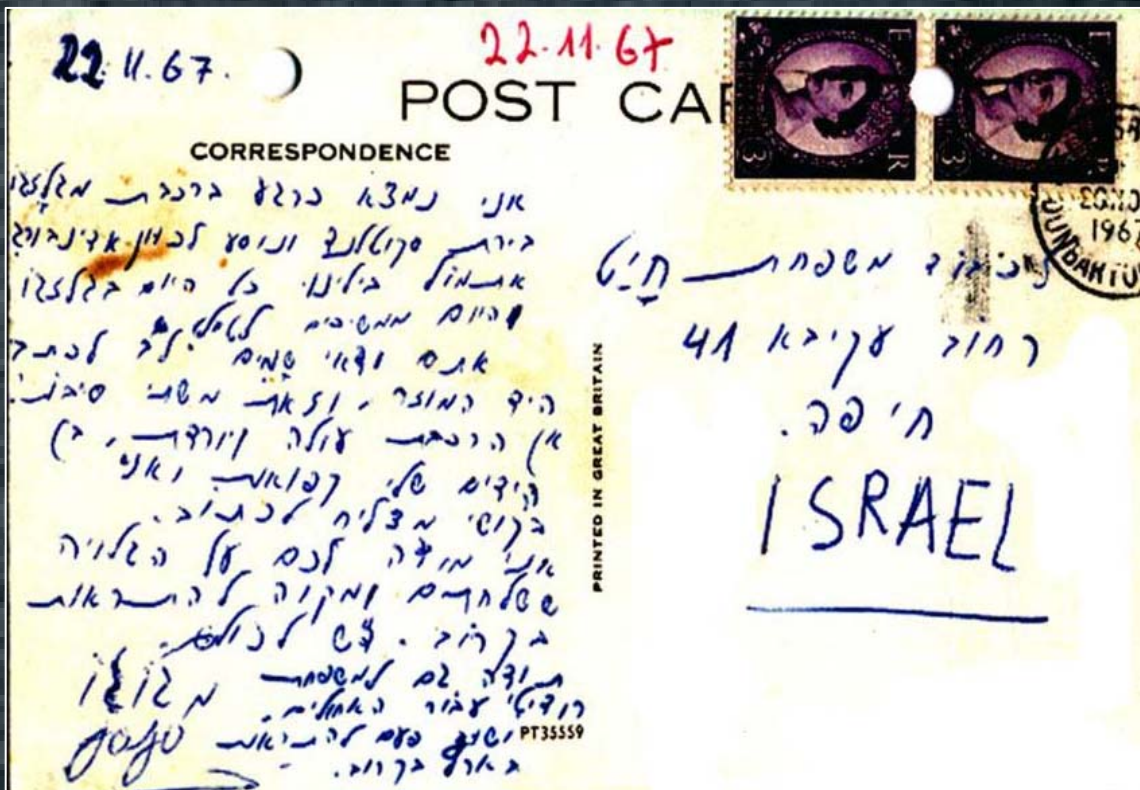 22.11.67.
22.11.67
POST CAR
CORRESPONDENCE
אני נמצא כרגע ברכבת מגלזגו
בירת סקוטלנד ונוסע לכוון אדינבורג
אתמול בילינו כל היום בגלזגו
והיום ממשיכים לטייל.
אתם ודאי שמים לב לכתב
היד המוזר, וזאת משתי סיבות:
א) הרכבת עולה ויורדת, ב)
הידים שלי קפואות ואני
בקושי מצליח לכתוב.
אני מודה לכם על הגלויה
ששלחתם ומקוה להתראות
בקרוב. ד"ש לכולם.
מגוגו
gogo
תודה גם למשפחת
עבור האחולים.
ושוב פעם להתראות
בארץ בקרוב.
PT35559
PRINTED IN GREAT BRITAIN
לכבוד משפחת חיט
רחוב עקיבא 41
חיפה.
ISRAEL
E R
3
E R
3
1967